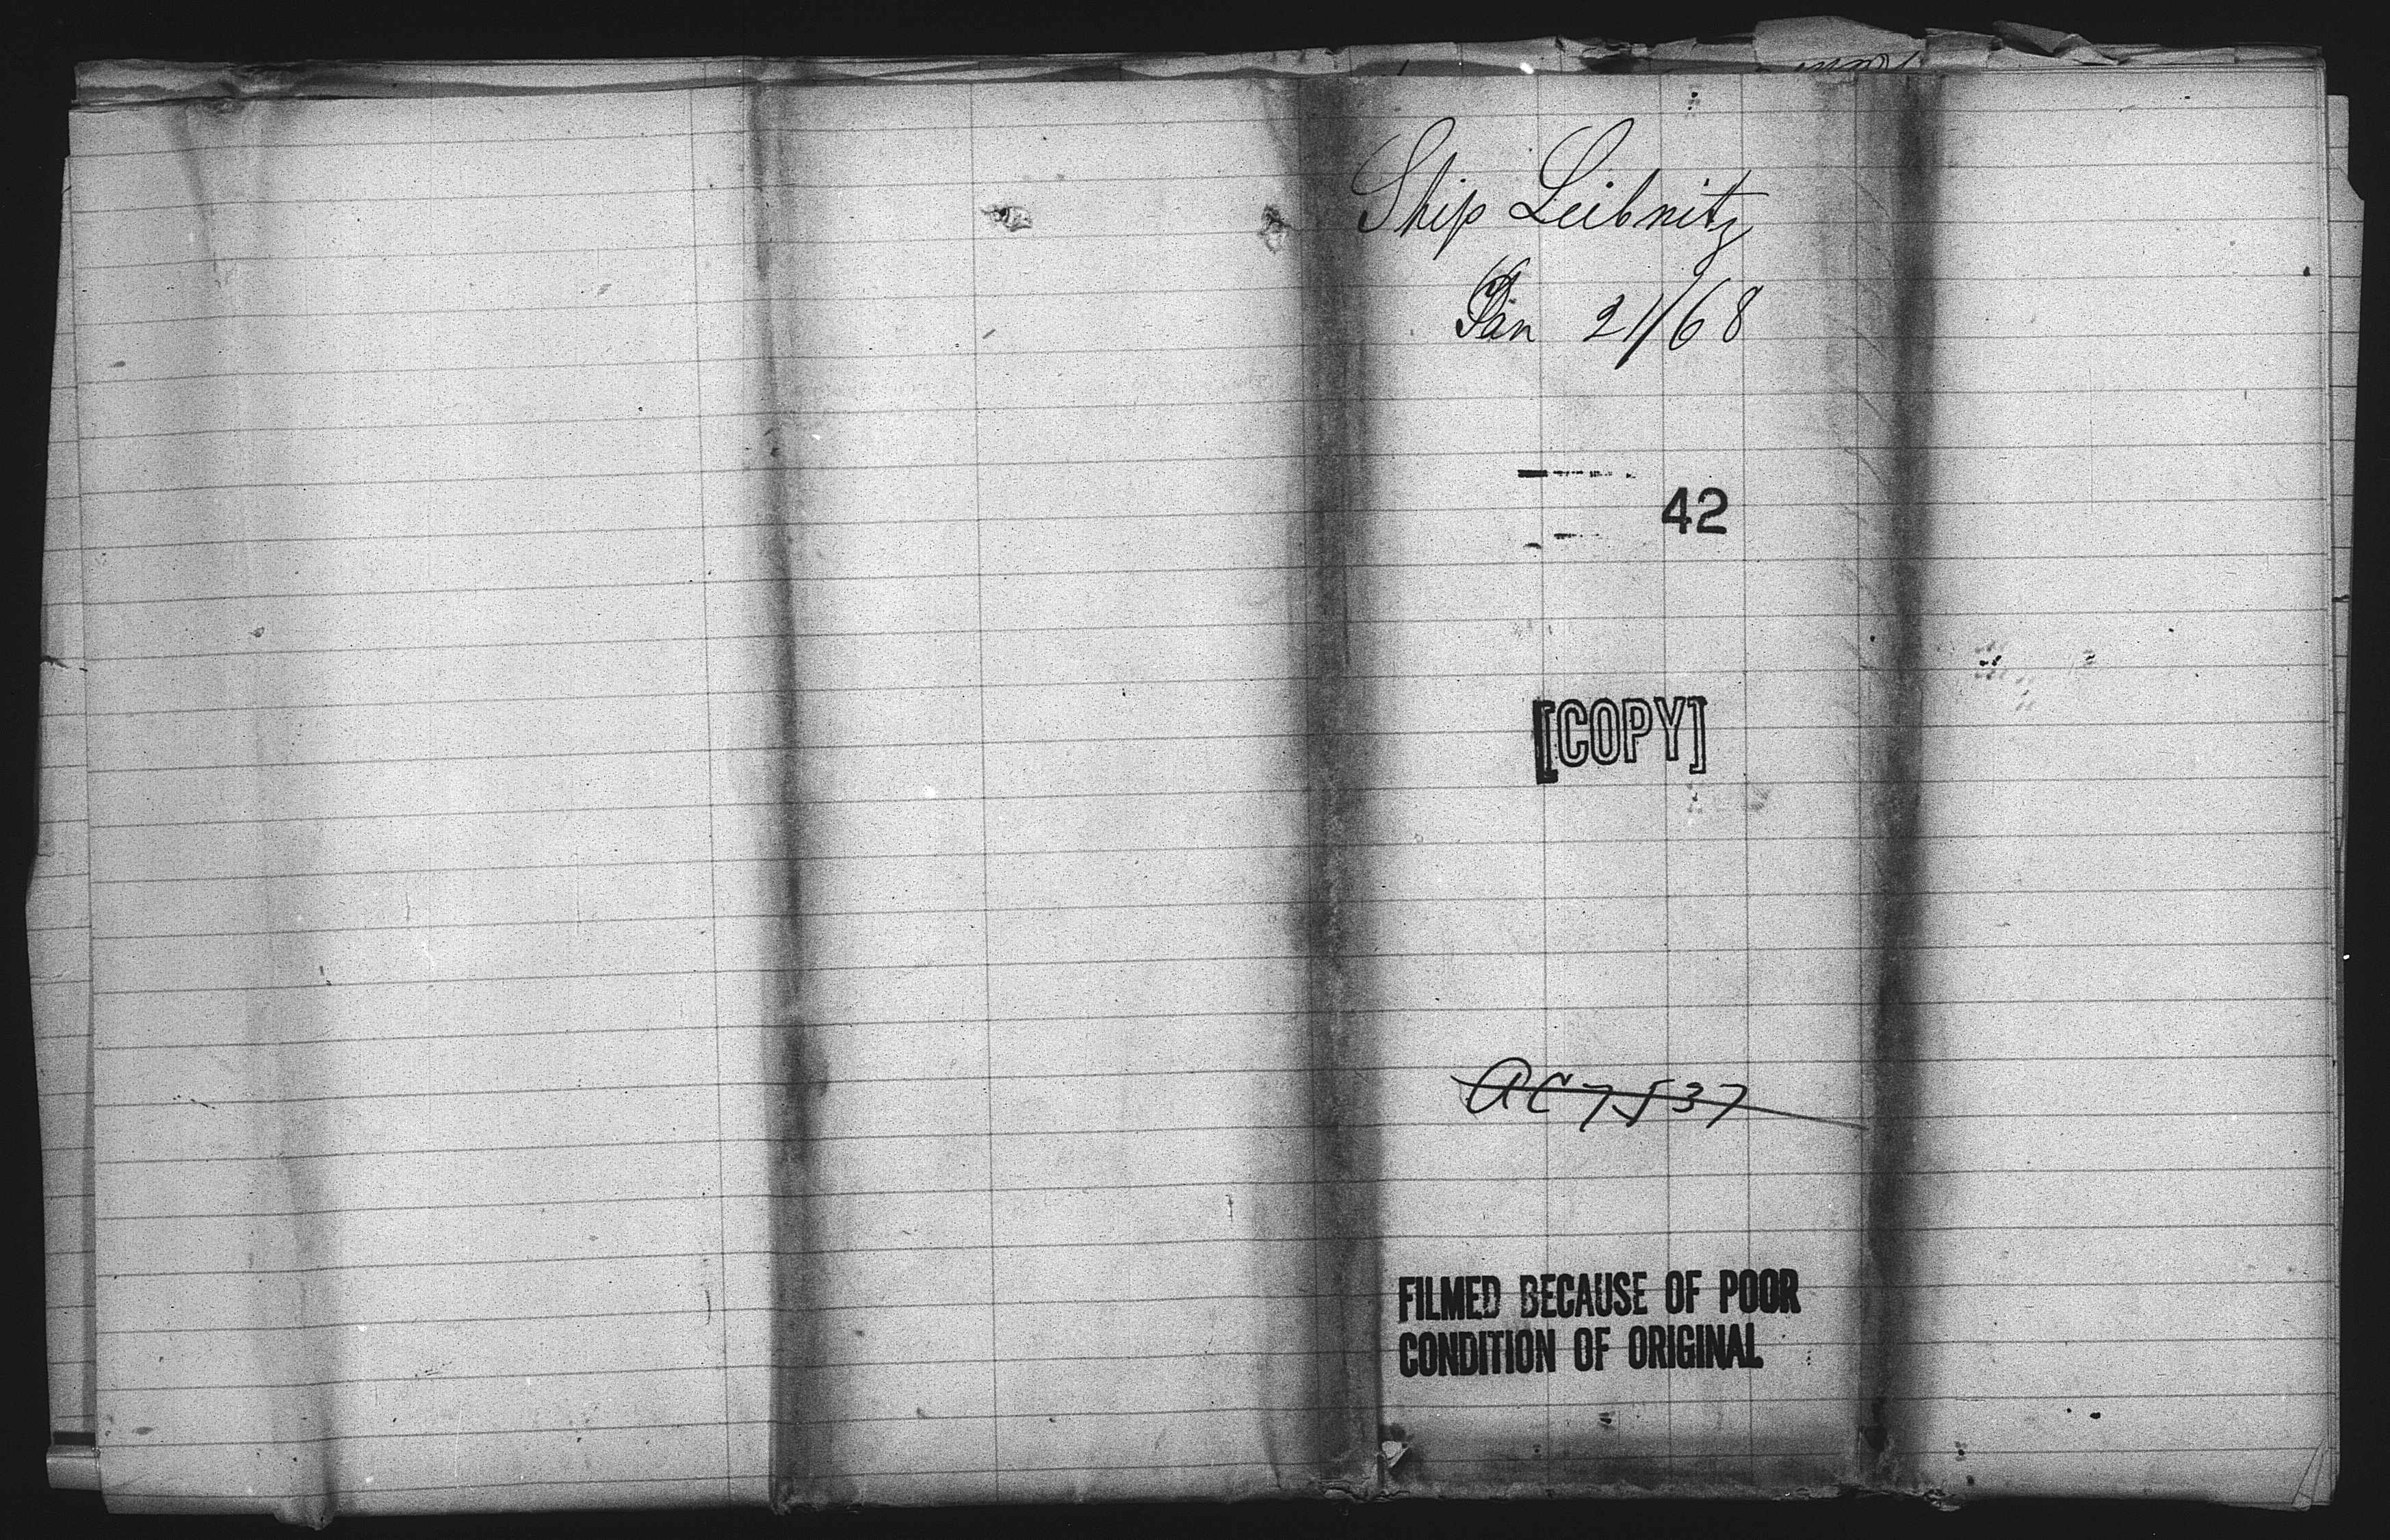 Ship Leibnitz
Jan 21/68
42
[COPY]
AC 7537
FILMED BECAUSE OF POOR
CONDITION OF ORIGINAL